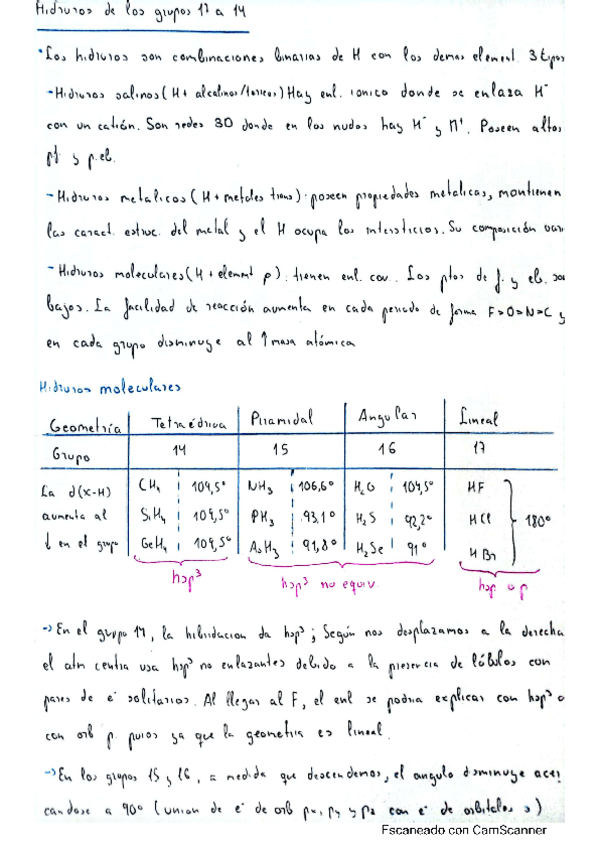 Hidruros de los grupos 17 a 14
• Los hidruros son combinaciones binarias de H con los demas element. 3 tipos
- Hidruros salinos (H + alcalinos/terreos) Hay enl. ionico donde se enlaza H⁻
con un catión. Son redes 3D donde en los nudos hay H⁻ y M⁺. Poseen altos
pf y p.eb.
- Hidruros metalicos (H + metales trans): poseen propiedades metalicas, mantienen
las caract. estruc. del metal y el H ocupa los intersticios. Su composición vari
- Hidruros moleculares (H + element p): tienen enl. cov. Los ptos de f. y eb. son
bajos. La facilidad de reacción aumenta en cada periodo de forma F>O>N>C y
en cada grupo disminuye al ↑ masa atómica
Hidruros moleculares
Geometría Tetraédrica Piramidal Angular Lineal
Grupo 14 15 16 17
La d(X-H) CH₄ 109,5° NH₃ 106,6° H₂O 104,5° HF
aumenta al SiH₄ 109,5° PH₃ 93,1° H₂S 92,2° HCl 180°
↓ en el grupo GeH₄ 109,5° AsH₃ 91,8° H₂Se 91° HBr
hsp³ hsp³ no equiv hsp o p
→ En el grupo 14, la hibridacion da hsp³; Según nos desplazamos a la derecha
el atm centra usa hsp³ no enlazantes debido a la presencia de lóbulos con
pares de e⁻ solitarios. Al llegar al F, el enl se podria explicar con hsp³ o
con orb p. puros ya que la geometria es lineal.
→ En los grupos 15 y 16, a medida que descendemos, el angulo disminuye acer
candose a 90° (union de e⁻ de orb px, py y pz con e⁻ de orbitales s)
Escaneado con CamScanner